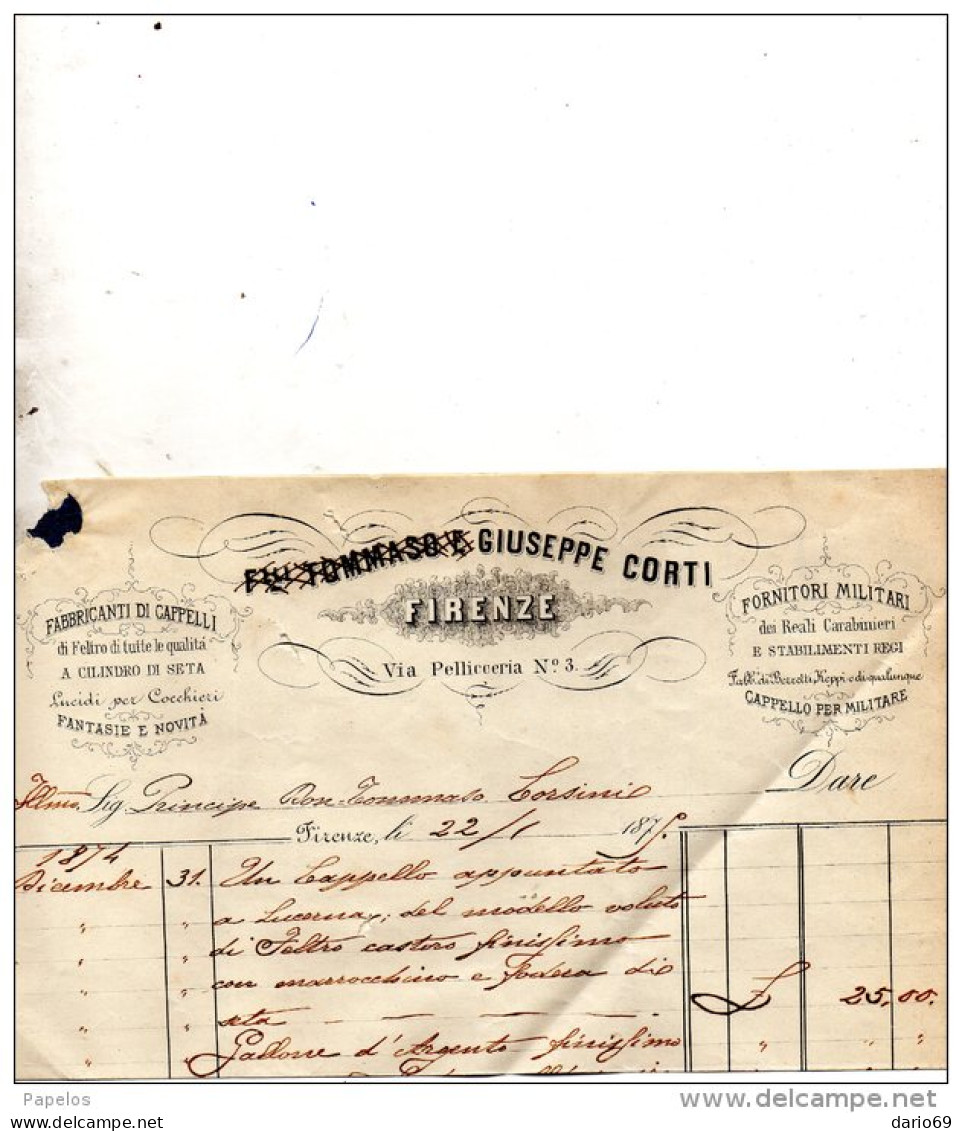 Flli TOMMASO E GIUSEPPE CORTI
FIRENZE
Via Pellicceria No. 3.
FABBRICANTI DI CAPPELLI
di Feltro di tutte le qualitá
A CILINDRO DI SETA
Lucidi per Cocchieri
FANTASIE E NOVITÀ
FORNITORI MILITARI
dei Reali Carabinieri
E STABILIMENTI REGI
Fabb.i di Berretti, Keppi e di qualunque
CAPPELLO PER MILITARE
Illmo. Sig. Principe Don Tommaso Corsini Dare
Firenze, li 22/1 1875.
1874
Dicembre 31. Un Cappello appuntato
" " a Lucerna, del modello voluto
" " di Feltro castoro finissimo
" " con marrocchino e fodera di
" " seta — — — — £ 25,00.
" " Gallone d'Argento finissimo " " "
Papelos
www.delcampe.net
dario69